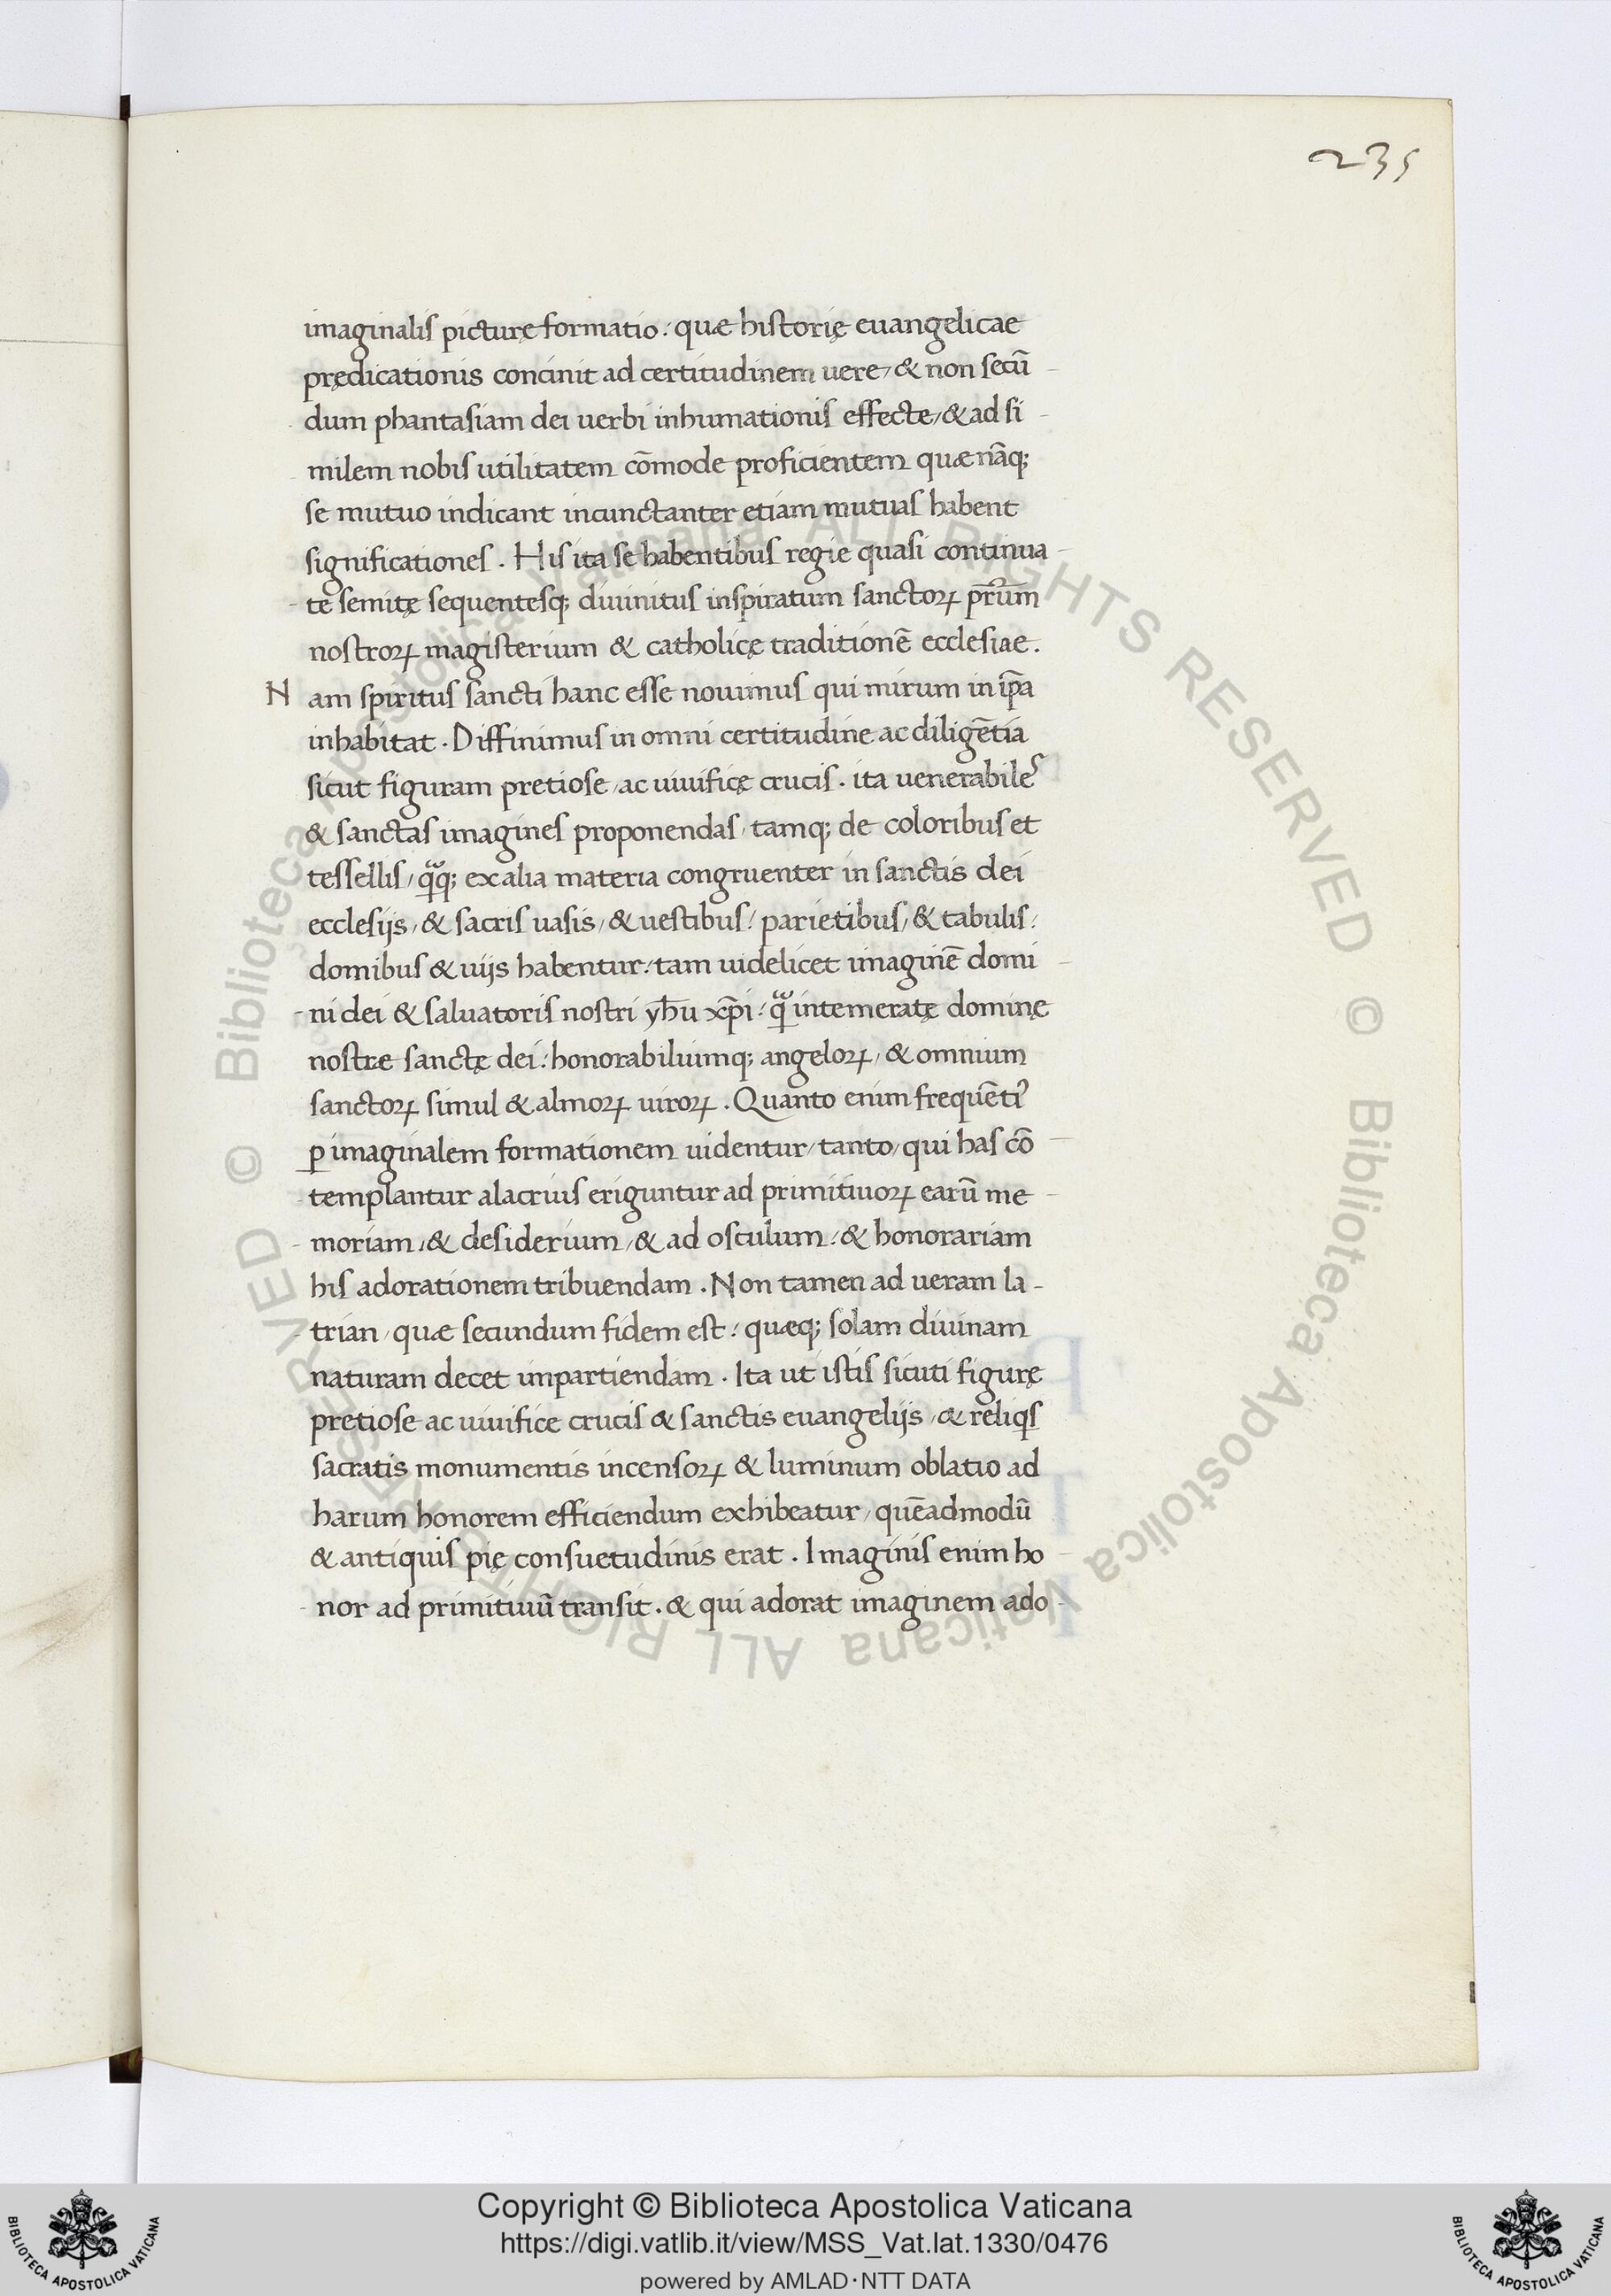 235
imaginalis picturę formatio: quæ historię euangelicae
prędicationis concinit ad certitudinem uere, & non secū
dum phantasiam dei uerbi inhumationis effecte, & ad si
milem nobis utilitatem cōmode proficientem quæ nāq;
se mutuo indicant incunctanter etiam mutuas habent
significationes. His ita se habentibus regie quasi continua
te semitę sequentesq; diuinitus inspiratum sanctoꝝ pr̄um
nostroꝝ magisterium & catholicę traditionē ecclesiae.
Nam spiritus sancti hanc esse nouimus qui mirum in ip̄a
inhabitat. Diffinimus in omni certitudine ac diligētia
sicut figuram pretiose, ac uiuificę crucis. ita uenerabiles
& sanctas imagines proponendas, tamq; de coloribus et
tessellis, qͣ̄q; ex alia materia congruenter in sanctis dei
ecclesijs, & sacris uasis, & uestibus: parietibus, & tabulis:
domibus & uijs habentur: tam uidelicet imaginē domi
ni dei & saluatoris nostri yħu xp̄i: qͣ̄ intemeratę dominę
nostræ sanctę dei: honorabiliumq; angeloꝝ, & omnium
sanctoꝝ simul & almoꝝ uiroꝝ. Quanto enim frequētiʼ
ꝑ imaginalem formationem uidentur, tanto, qui has cō
templantur alacrius eriguntur ad primitiuoꝝ earū me
moriam, & desiderium, & ad osculum: & honorariam
his adorationem tribuendam. Non tamen ad ueram la-
trian, quæ secundum fidem est: quæq; solam diuinam
naturam decet impartiendam. Ita ut istis sicuti figurę
pretiose ac uiuifice crucis & sanctis euangelijs, & reliqs
sacratis monumentis incensoꝝ & luminum oblatio ad
harum honorem efficiendum exhibeatur, quēadmodū
& antiquis pię consuetudinis erat. Imaginis enim ho
nor ad primitiuū transit. & qui adorat imaginem ado
© Biblioteca Apostolica Vaticana ALL RIGHTS RESERVED © Biblioteca Apostolica Vaticana ALL RIGHTS RESERVED
Copyright © Biblioteca Apostolica Vaticana
https://digi.vatlib.it/view/MSS_Vat.lat.1330/0476
powered by AMLAD·NTT DATA
BIBLIOTECA APOSTOLICA VATICANA
BIBLIOTECA APOSTOLICA VATICANA